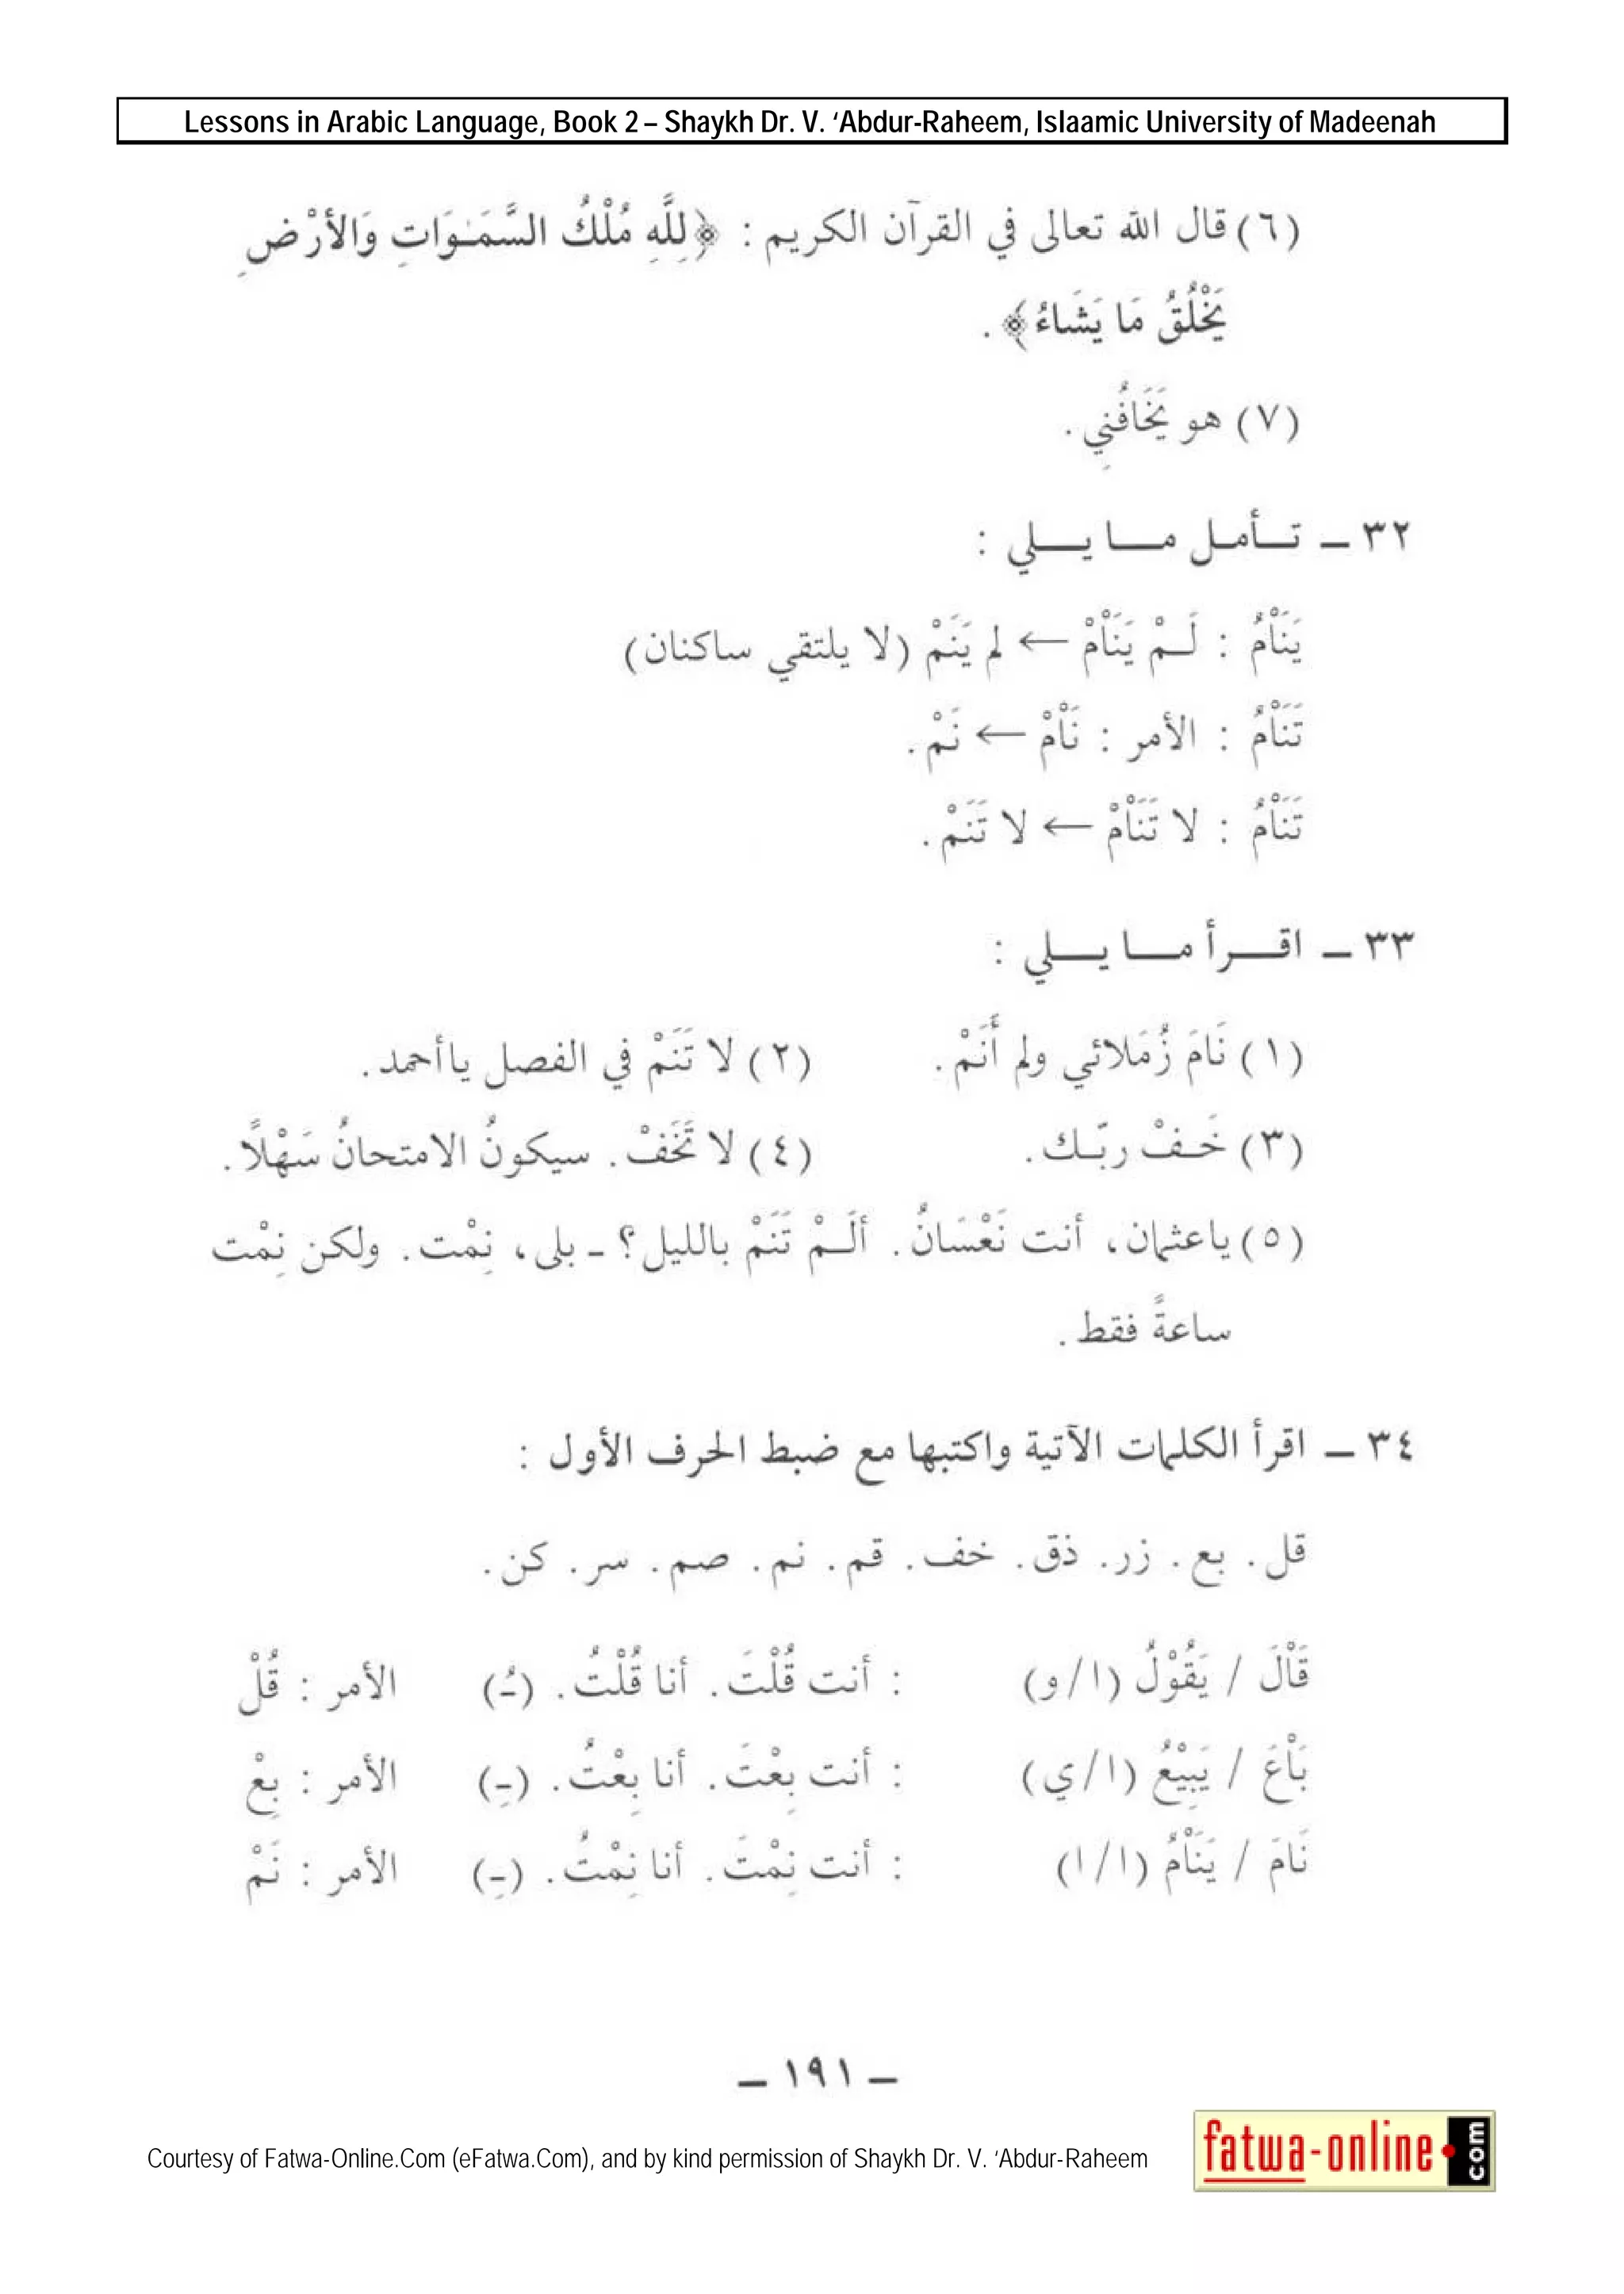 Lessons in Arabic Language, Book 2 – Shaykh Dr. V. ‘Abdur-Raheem, Islaamic University of Madeenah
(٦) قال الله تعالى في القرآن الكريم : ﴿لِلَّهِ مُلْكُ السَّمَـٰوَاتِ وَالأَرْضِ
يَخْلُقُ مَا يَشَاءُ﴾ .
(٧) هو يَخَافُنِي .
٣٢ ــ تـــأمـل مـــا يـــلي :
يَنَاْمُ : لَــمْ يَنَاْمْ ← لم يَنَمْ (لا يلتقي ساكنان)
تَنَاْمُ : الأمر : نَاْمْ ← نَمْ .
تَنَاْمُ : لا تَنَاْمْ ← لا تَنَمْ .
٣٣ ــ اقـــرأ مـــا يـــلي :
(١) نَامَ زُمَلائي ولم أَنَمْ . (٢) لا تَنَمْ في الفصل ياأحمد .
(٣) خَـفْ ربّـك . (٤) لا تَخَفْ . سيكونُ الامتحانُ سَهْلاً .
(٥) ياعثمان، أنت نَعْسَانُ . ألَــمْ تَنَمْ بالليل؟ ـ بلى، نِمْت . ولكن نِمْت
ساعةً فقط .
٣٤ ــ اقرأ الكلمات الآتية واكتبها مع ضبط الحرف الأول :
قل . بع . زر . ذق . خف . قم . نم . صم . سر . كن .
قَاْلَ / يَقُوْلُ (ا/و) : أنت قُلْتَ . أنا قُلْتُ . (ـُ) الأمر : قُلْ
بَاْعَ / يَبِيْعُ (ا/ي) : أنت بِعْتَ . أنا بِعْتُ . (ـِ) الأمر : بِعْ
نَامَ / يَنَاْمُ (ا/ا) : أنت نِمْتَ . أنا نِمْتُ . (ـِ) الأمر : نَمْ
ــ ١٩١ ــ
Courtesy of Fatwa-Online.Com (eFatwa.Com), and by kind permission of Shaykh Dr. V. ‘Abdur-Raheem
fatwa-online.com